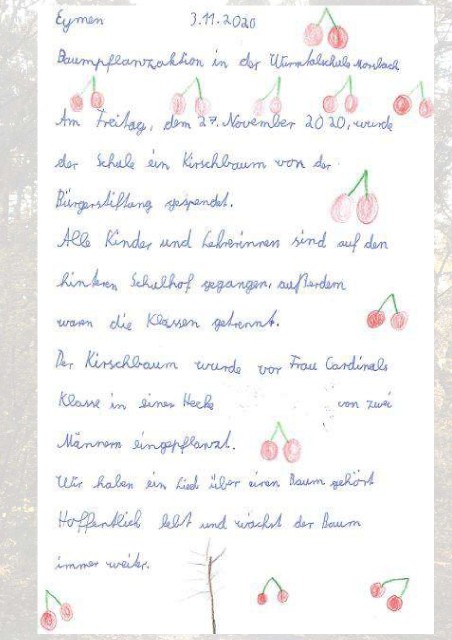 Eymen 3.11.2020
Baumpflanzaktion in der Wurmtalschule Morsbach
Am Freitag, dem 27. November 2020, wurde
der Schule ein Kirschbaum von der
Bürgerstiftung gespendet.
Alle Kinder und Lehrerinnen sind auf den
hinteren Schulhof gegangen, außerdem
waren die Klassen getrennt.
Der Kirschbaum wurde vor Frau Cardinals
Klasse in einer Hecke von zwei
Männern eingepflanzt.
Wir haben ein Lied über einen Baum gehört
Hoffentlich lebt und wächst der Baum
immer weiter.